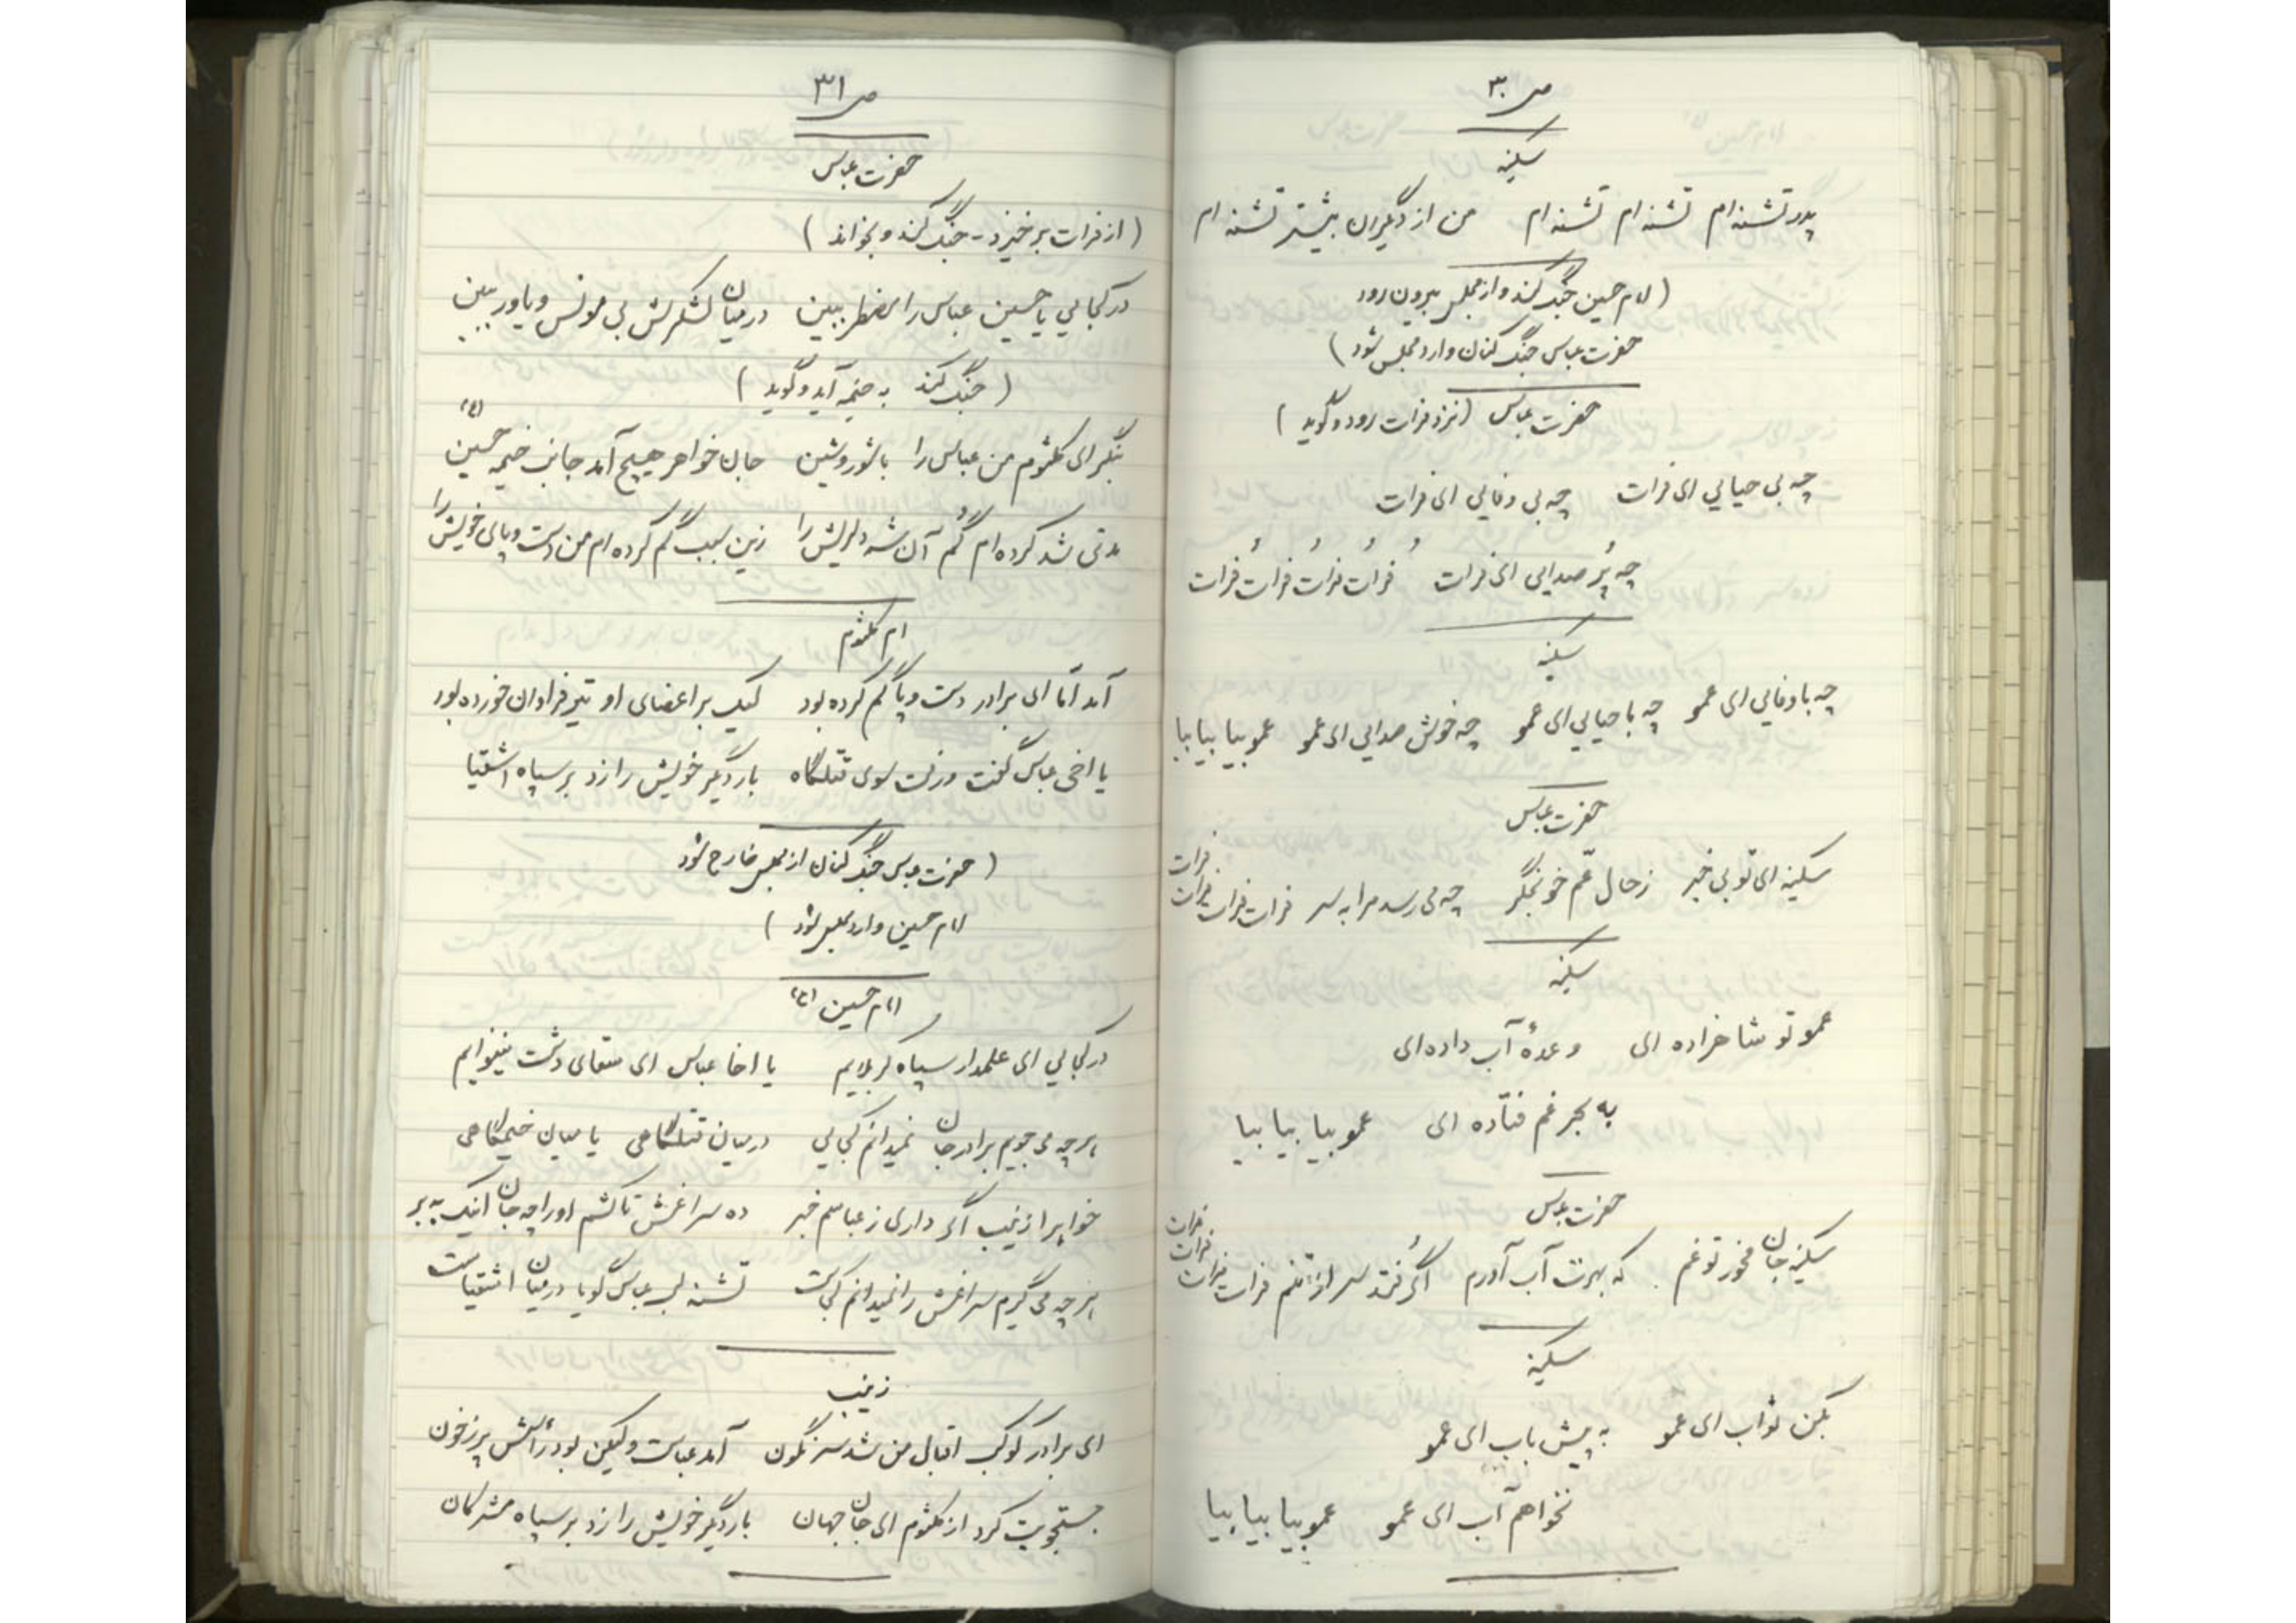 ص ۳۰
سکینه
پدر تشنه ام تشنه ام تشنه ام من از دیگران بیشتر تشنه ام
(امام حسین جنگ کند و از مجلس بیرون رود
حضرت عباس جنگ کنان وارد مجلس شود)
حضرت عباس (نزد فرات رود و گوید)
چه بی حیایی ای فرات چه بی وفایی ای فرات
چه پُر صدایی ای فرات فُرات فُرات فُرات فُرات
سکینه
چه باوفایی ای عمو چه با حیایی ای عمو چه خوش صدایی ای عمو عمو بیا بیا بیا
حضرت عباس
سکینه ای تو بی خبر ز حال عّم خونجگر چه می رسد مرا به سر فرات فرات فرات فرات
سکینه
عمو تو شاهزاده ای وعدهٔ آب داده ای
به بحر غم فتاده ای عمو بیا بیا بیا
حضرت عباس
سکینه جان مخور تو غم که بهرت آب آورم اگر فُتد سر از تنم فرات فرات فرات فرات
سکینه
بکن ثواب ای عمو به پیش باب ای عمو
نخواهم آب ای عمو عمو بیا بیا بیا
ص ۳۱
حضرت عباس
(از فرات برخیزد - جنگ کند و بخواند)
در کجایی یا حسین عباس را مضطر ببین در میان لشکرش بی مونس و یاور ببین
(جنگ کند به خیمه آید و گوید)
بنگر ای کلثوم من عباس را با شور و شین جان خواهر هیچ آمد جانب خیمه حسین (ع)
مدتی شد کرده ام گُم آن شه دلریش را زین سبب گم کرده ام من دست و پای خویش را
ام کلثوم
آمد امّا ای برادر دست و پا گم کرده بود لیک بر اعضای او تیر فراوان خورده بود
یا اخی عباس گفت و رفت سوی قتلگاه بار دیگر خویش را زد بر سپاه اشقیا
(حضرت عباس جنگ کنان از مجلس خارج شود
امام حسین وارد مجلس شود)
امام حسین (ع)
در کجایی ای علمدار سپاه کربلایم یا اخا عباس ای سقای دشت نینوایم
هر چه می جویم برادر جان نمیدانم کجایی در میان قتلگاهی یا میان خیمگاهی
خواهرا زینب اگر داری ز عباسم خبر ده سراغش تا کشم او را چه جان اینک به بر
هر چه می گیرم سراغش را نمیدانم کجاست تشنه لب عباس گویا در میان اشقیاست
زینب
ای برادر کوکب اقبال من شد سرنگون آمد عباست ولیکن بود رأسش پر ز خون
جستجویت کرد از کلثوم ای جان جهان بار دیگر خویش را زد بر سپاه مشرکان